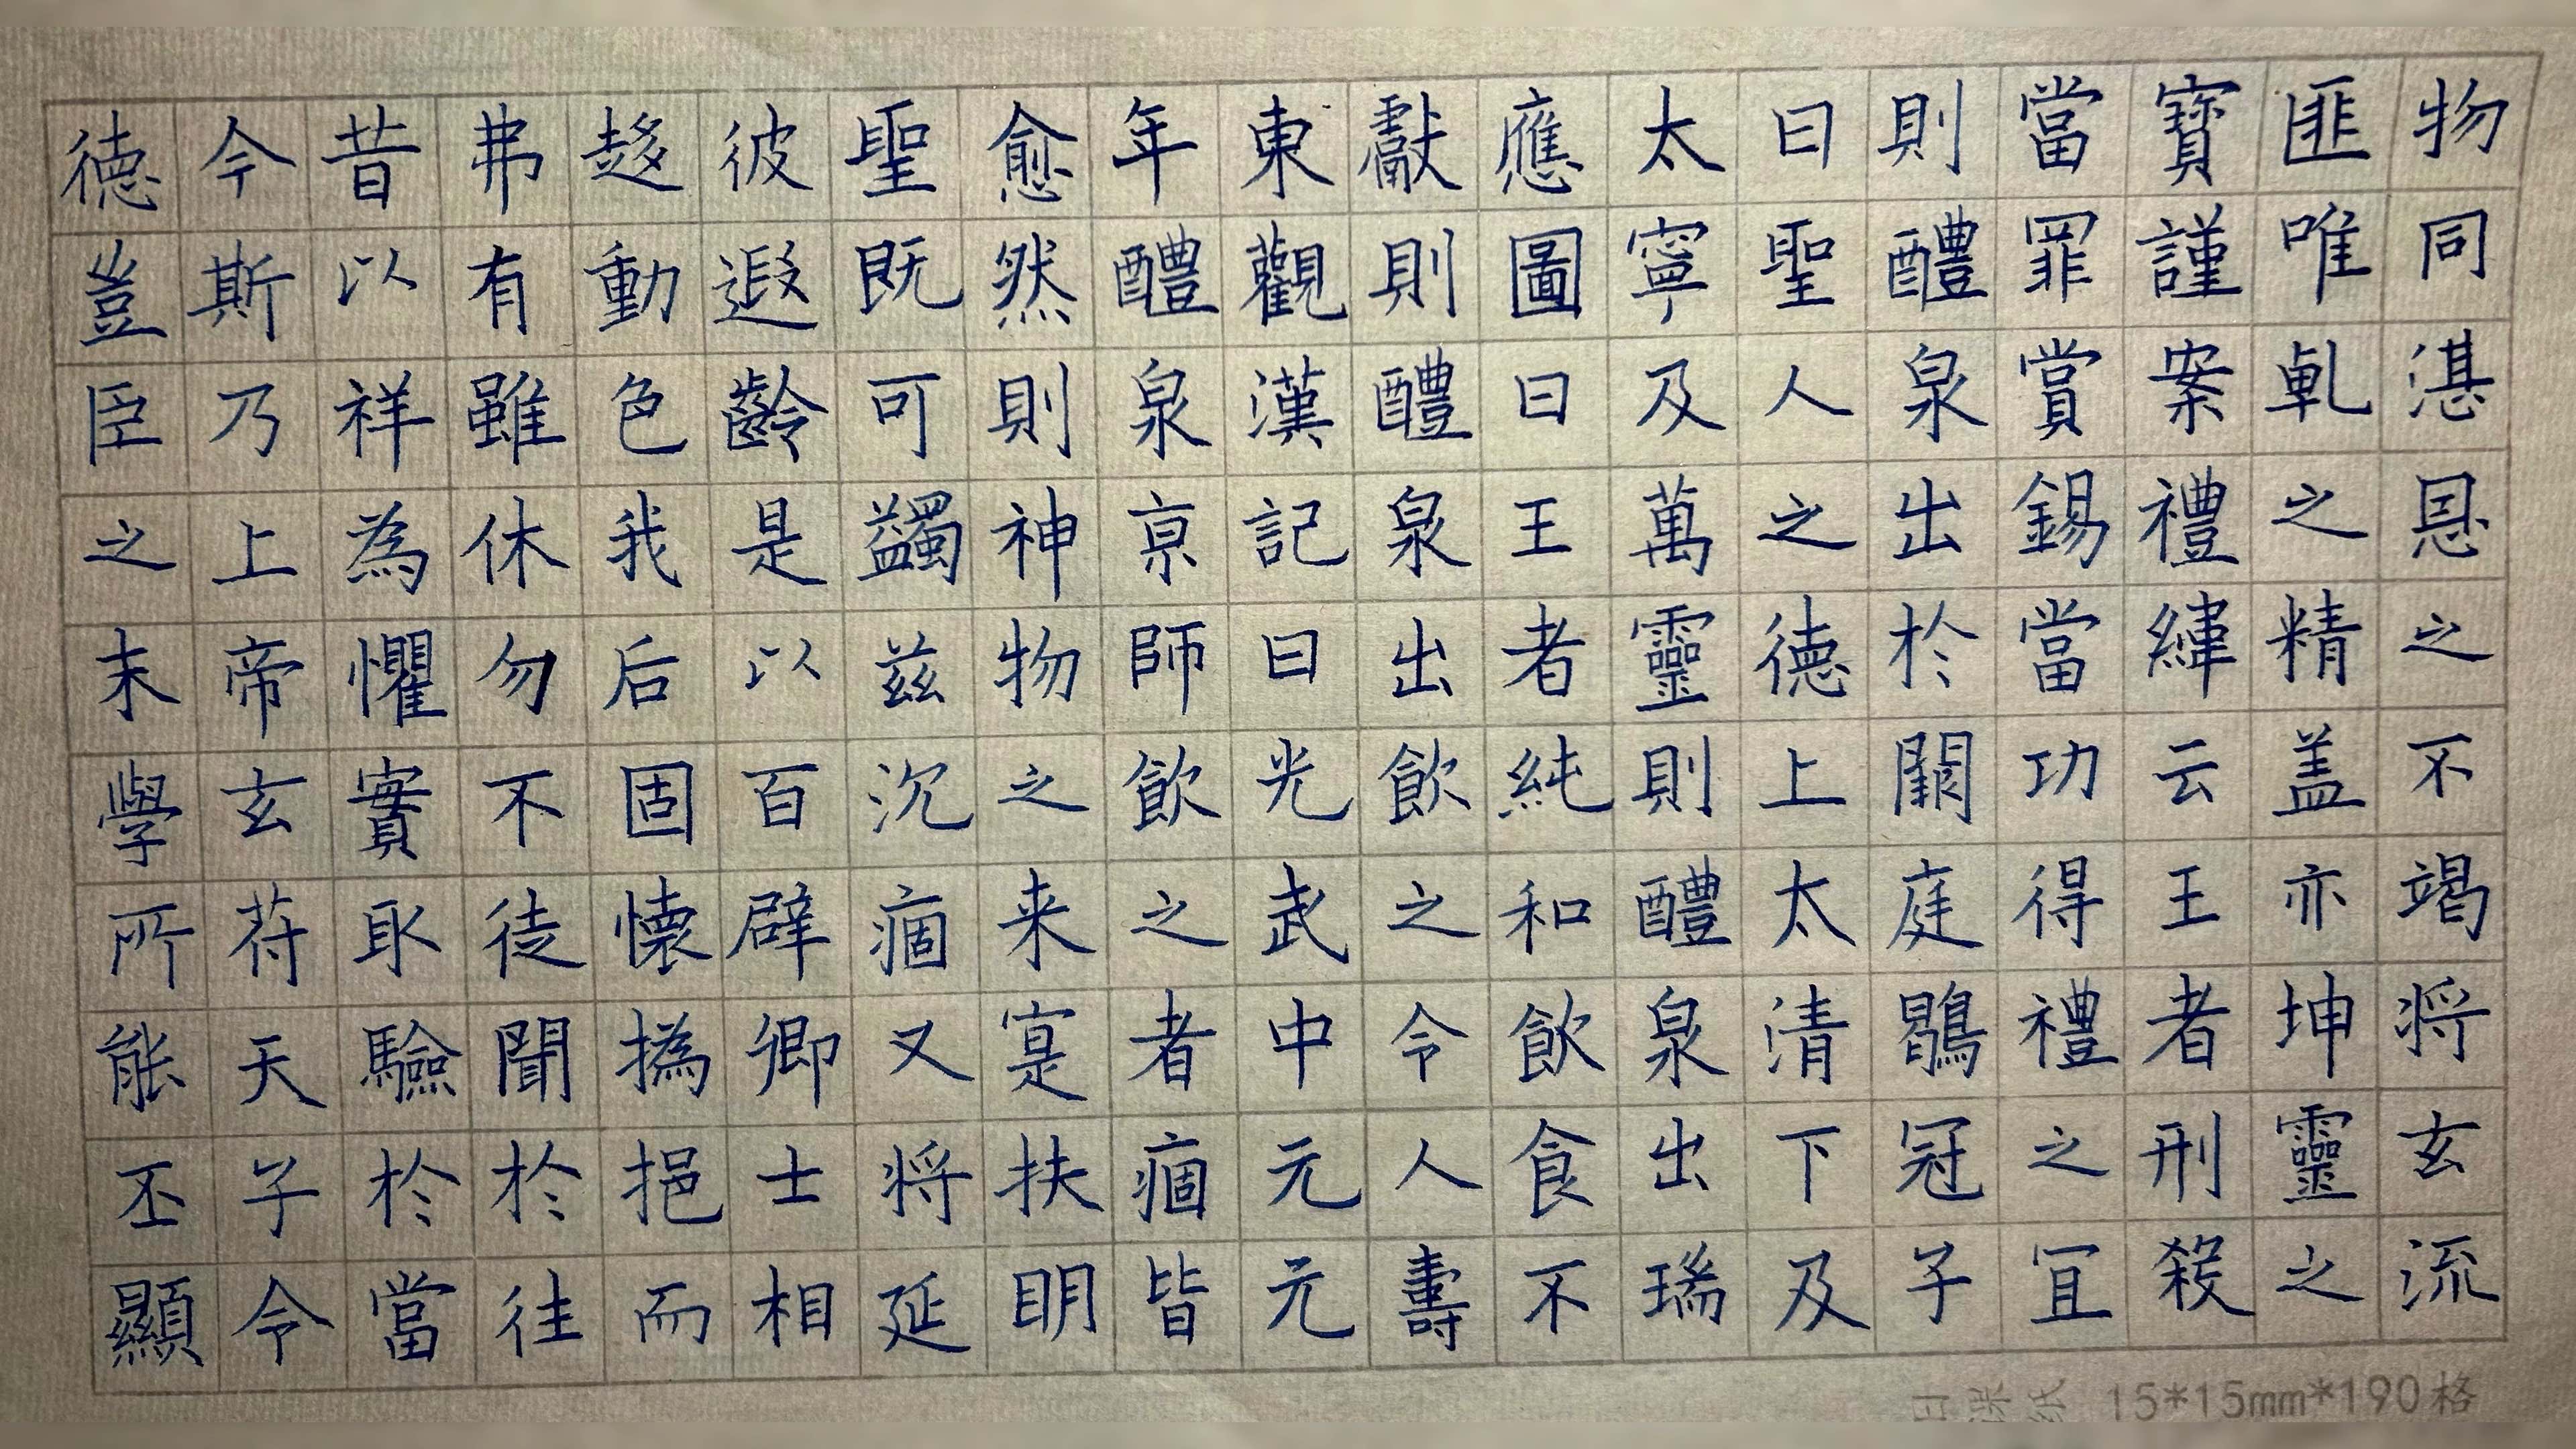 物同湛恩之不竭将玄流
匪唯乹之精盖亦坤靈之
寳謹案禮緯云王者刑殺
當罪賞錫當功得禮之宜
則醴泉出於闕庭鶡冠子
曰聖人之德上太清下及
太寧及萬靈則醴泉出瑞
應圖曰王者純和飲食不
獻則醴泉出飲之令人壽
東觀漢記曰光武中元元
年醴泉京師飲之者痼皆
愈然則神物之来寔扶明
聖既可蠲兹沉痼又将延
彼遐齡是以百辟卿士相
趍動色我后固懷撝挹而
弗有雖休勿不徒聞於往
昔以祥為懼實取驗於當
今斯乃上帝玄苻天子令
德豈臣之末學所能丕顯
日课纸 15*15mm*190格